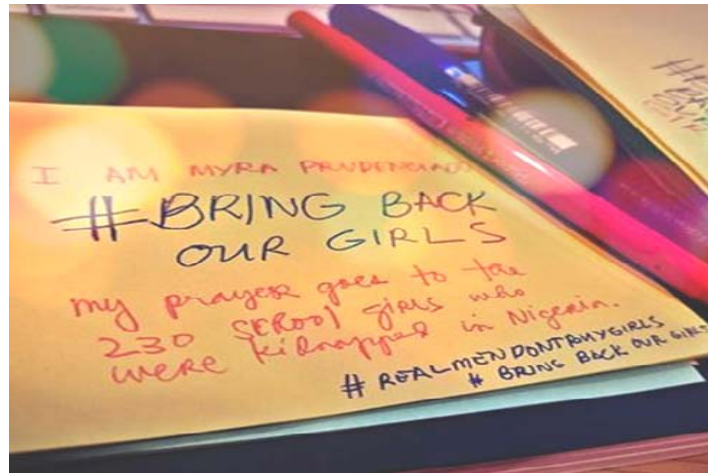 I AM MYRA PRUDENCIADO
#BRING BACK
OUR GIRLS
my prayer goes to the
230 SCHOOL girls who
were kidnapped in Nigeria.
# REALMENDONTBUYGIRLS
# BRING BACK OUR GIRLS